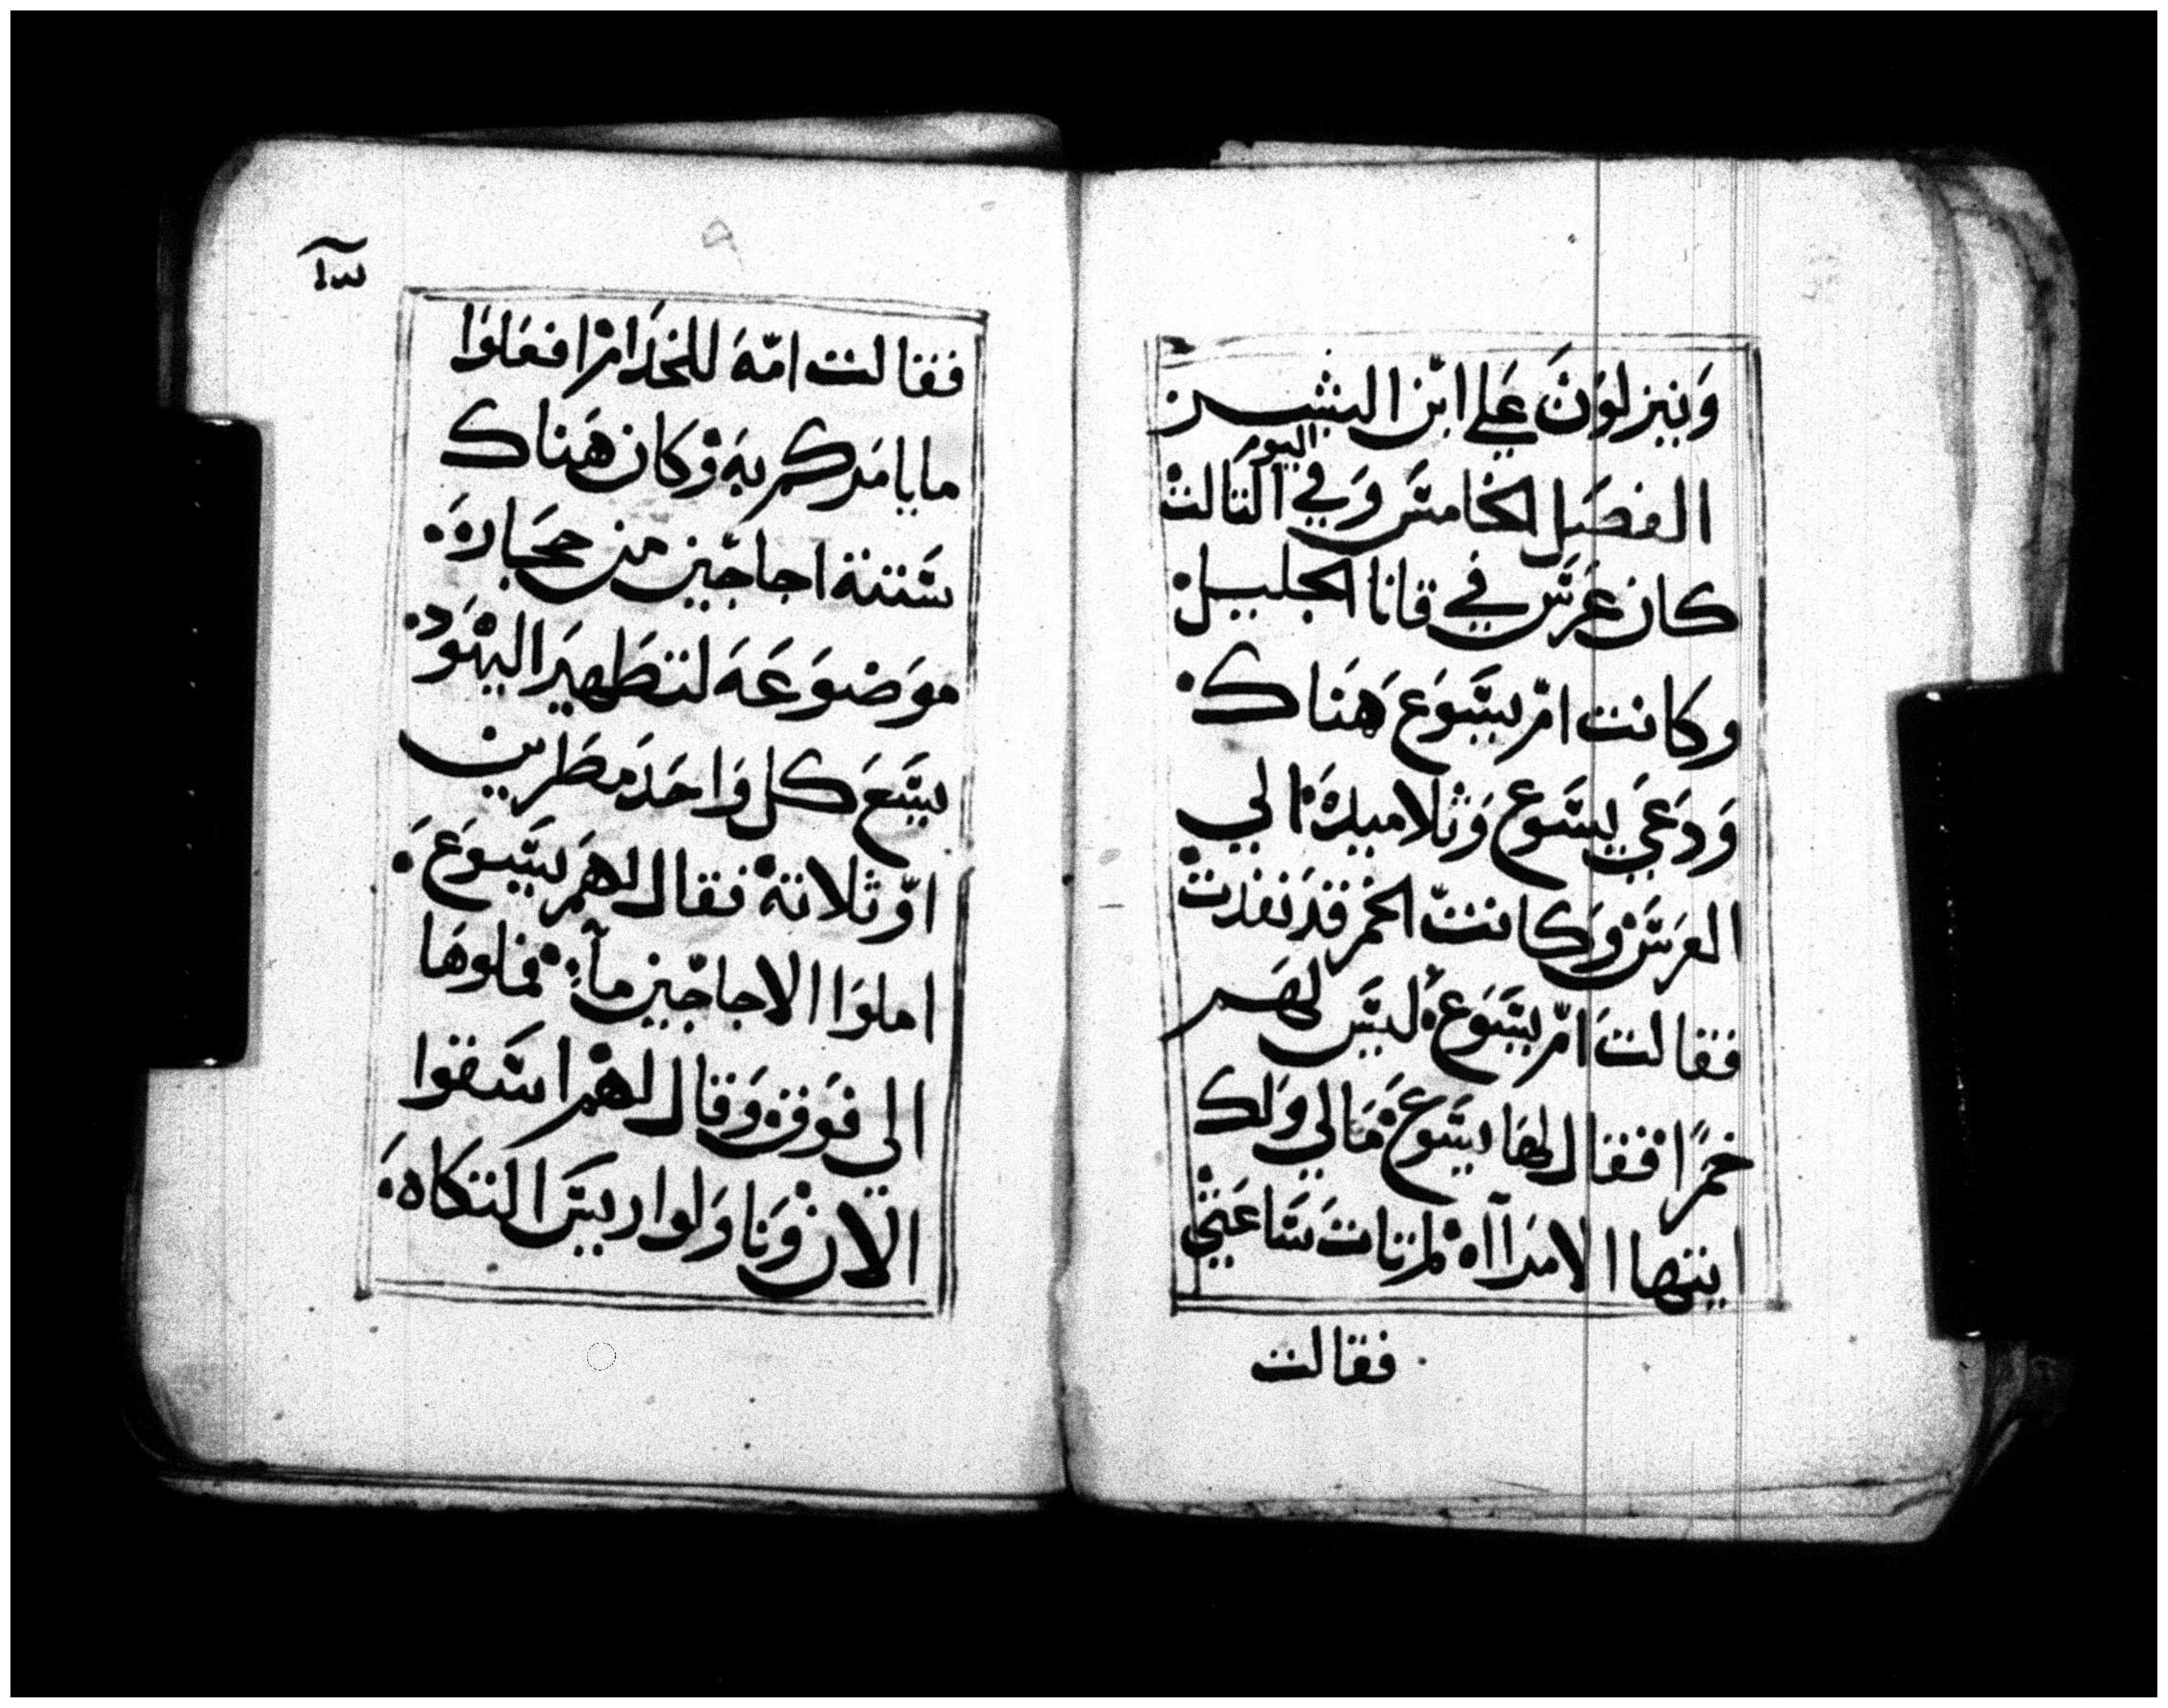 وَينِزلوَنَ عَلي ابّن البشِــر
الفصَل الخامسَ وَفي اليوَر الثالث
كان عَرسَ في قانا الجليـل:
وكانت امّ يسَوَع هَناك:
وَدَعَي يسَوع وَثلاميدهَ الي
العَرسَ وَكانتّ الخمر قدَ نفدت
فقالتَ امّ يسَوَع: ليسَ لهَـم
خمرًا فقال لهَا يسَوعَ مَالي وَلك
ايتها الامَرآاه لم تاتَ سَاعَتي
فقالت
فقالت امّهَ للخدَام افعَلوَا
ما يامَركم بهَ وَكان هَناك
سَتتة اجاجّين من حجَارهَ:
موَضوَعَهَ لتطَهيرَ اليهوَد:
يسَعَ كل وَاحَدَ مطَرين
اوّ ثلاتة فقال لهمَ يسَوَعَ:
املوَا الاجاجّين مآءً: فملوهَا
الي فوَق وَقال لهم اسَقوا
الان وَناوَلوا رييسَ التكاهَ: